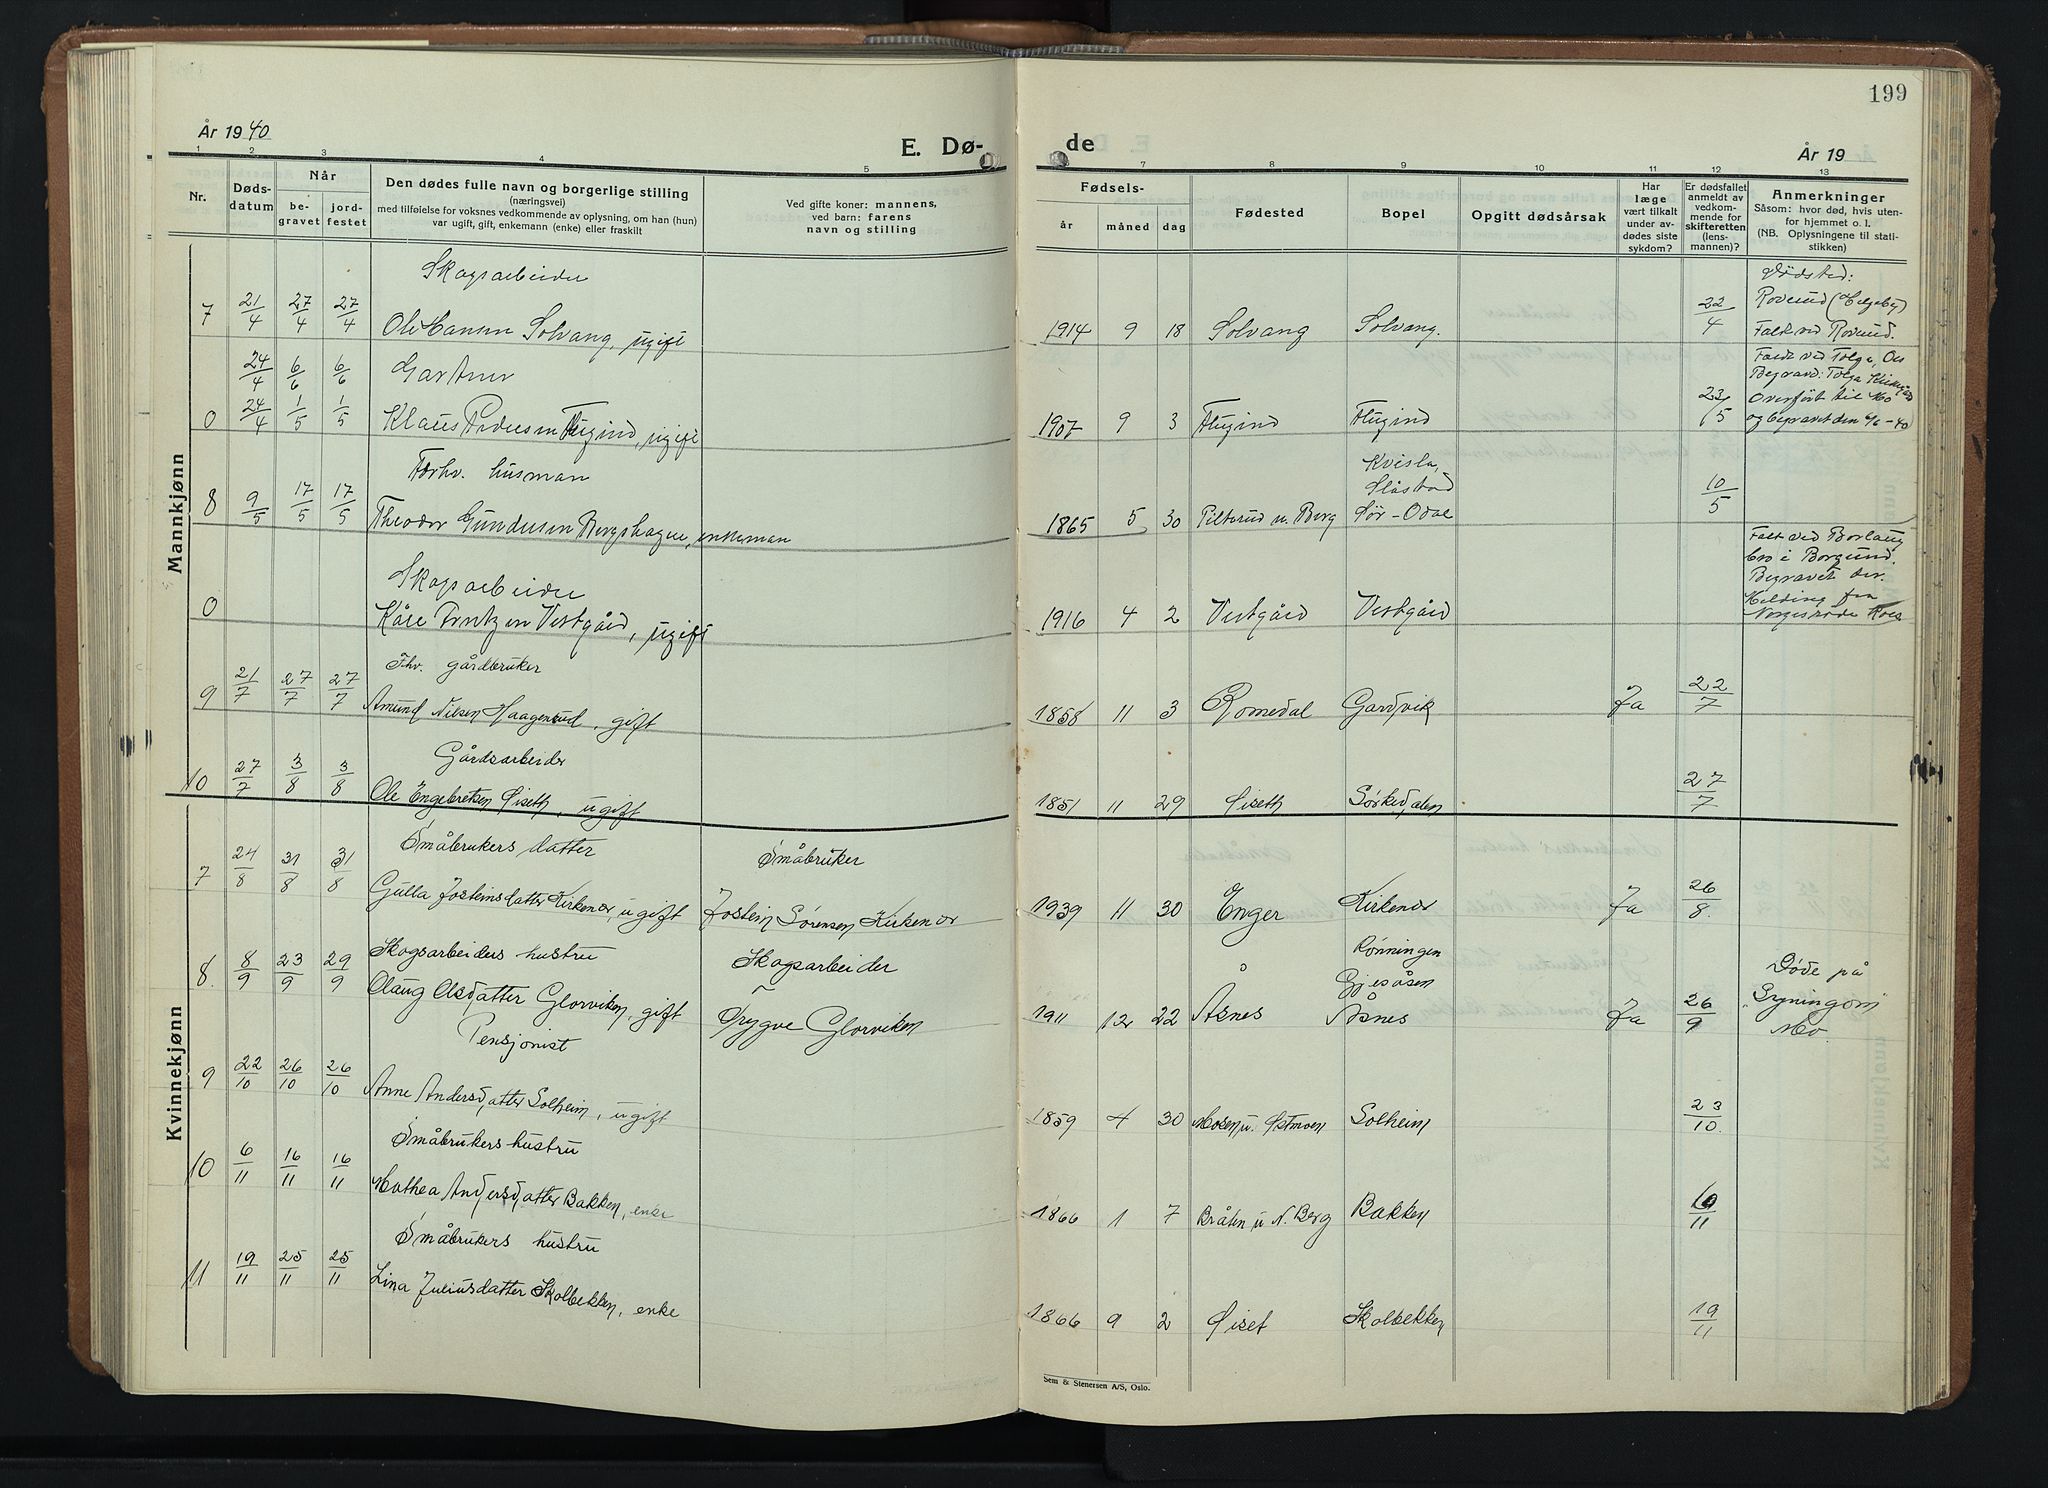 199
År 1940
E. Dø-
de
År 19
1 2 3 4 5 7 8 9 10 11 12 13
Nr.
Døds-
datum
Når
be-
gravet
jord-
festet
Den dødes fulle navn og borgerlige stilling
(næringsvei)
med tilføielse for voksnes vedkommende av oplysning, om han (hun)
var ugift, gift, enkemann (enke) eller fraskilt
Ved gifte koner: mannens,
ved barn: farens
navn og stilling
Fødsels-
år måned dag
Fødested
Bopel
Opgitt dødsårsak
Har
læge
vært tilkalt
under av-
dødes siste
sykdom?
Er dødsfallet
anmeldt av
vedkom-
mende for
skifteretten
(lens-
mannen)?
Anmerkninger
Såsom: hvor død, hvis uten-
for hjemmet o. l.
(NB. Oplysningene til stati-
stikken)
Mannkjønn
Skogsarbeider
7 21/4 27/4 27/4 Ole Hansen Solvang, ugift 1914 9 18 Solvang Solvang. 22/4
Dødsted:
Roverud (Helgeby)
Falt ved Roverud.
24/4 6/6 6/6 Gartner
0 24/4 1/5 1/5 Klaus Pedersen Flugind, ugift 1907 9 3 Flugind Flugind 23/5
Faldt ved Tolga, Os
Begravd: Tolga
Overført til Mo
og begravet den 6/6-40
Forhv. husman
8 9/5 17/5 17/5 Theodor Gundersen Bergshagen, enkeman 1865 5 30 Pilterud u. Berg
Kvisla,
Slåstad
Sør-Odal
10/5
Skogsarbeider
0 Kåre Frntzen Vestgård, ugift 1916 4 2 Vestgård Vestgård
Falt ved Borlaug
bro i Borgund.
Begravet der.
Melding fra
Norges røde Kors
Fhv. gårdbruker
9 21/7 27/7 27/7 Amund Nilsen Haagenrud, gift 1858 11 3 Romedal Gardvik Ja 22/7
Gårdsarbeider
10 27/7 3/8 3/8 Ole Engebretsen Øiseth, ugift 1851 11 29 Øiseth Sørkedalen 27/7
Kvinnekjønn
Småbrukers datter Småbruker
7 24/8 31/8 31/8 Gulla Josteinsdatter Kirkenær, ugift Jostein Sørensen Kirkenær 1939 11 30 Enger Kirkenær Ja 26/8.
Skogsarbeiders hustru Skogsarbeider
8. 8/9 23/9 29/9 Olaug Olsdatter Glorviken, gift Trygve Glorviken 1911 12 22 Åsnes
Rønningen
Gjesåsen
Åsnes
Ja 26/9
Døde på
"Gyningom"
Mo.
Pensjonist
9 22/10 26/10 26/10 Anne Andersdatter Solheim, ugift 1859 4 30 Mosen u. Østmoen Solheim 23/10.
Småbrukers hustru
10 6/11 16/11 16/11 Mathea Andersdatter Bakken, enke 1866 1 7 Bråten u N. Berg Bakken 10/11
Småbrukers hustru
11 19/11 25/11 25/11 Lina Juliusdatter Skolbekken, enke 1866 9 2 Øiset Skolbekken 19/11
Sem & Stenersen A/S, Oslo.